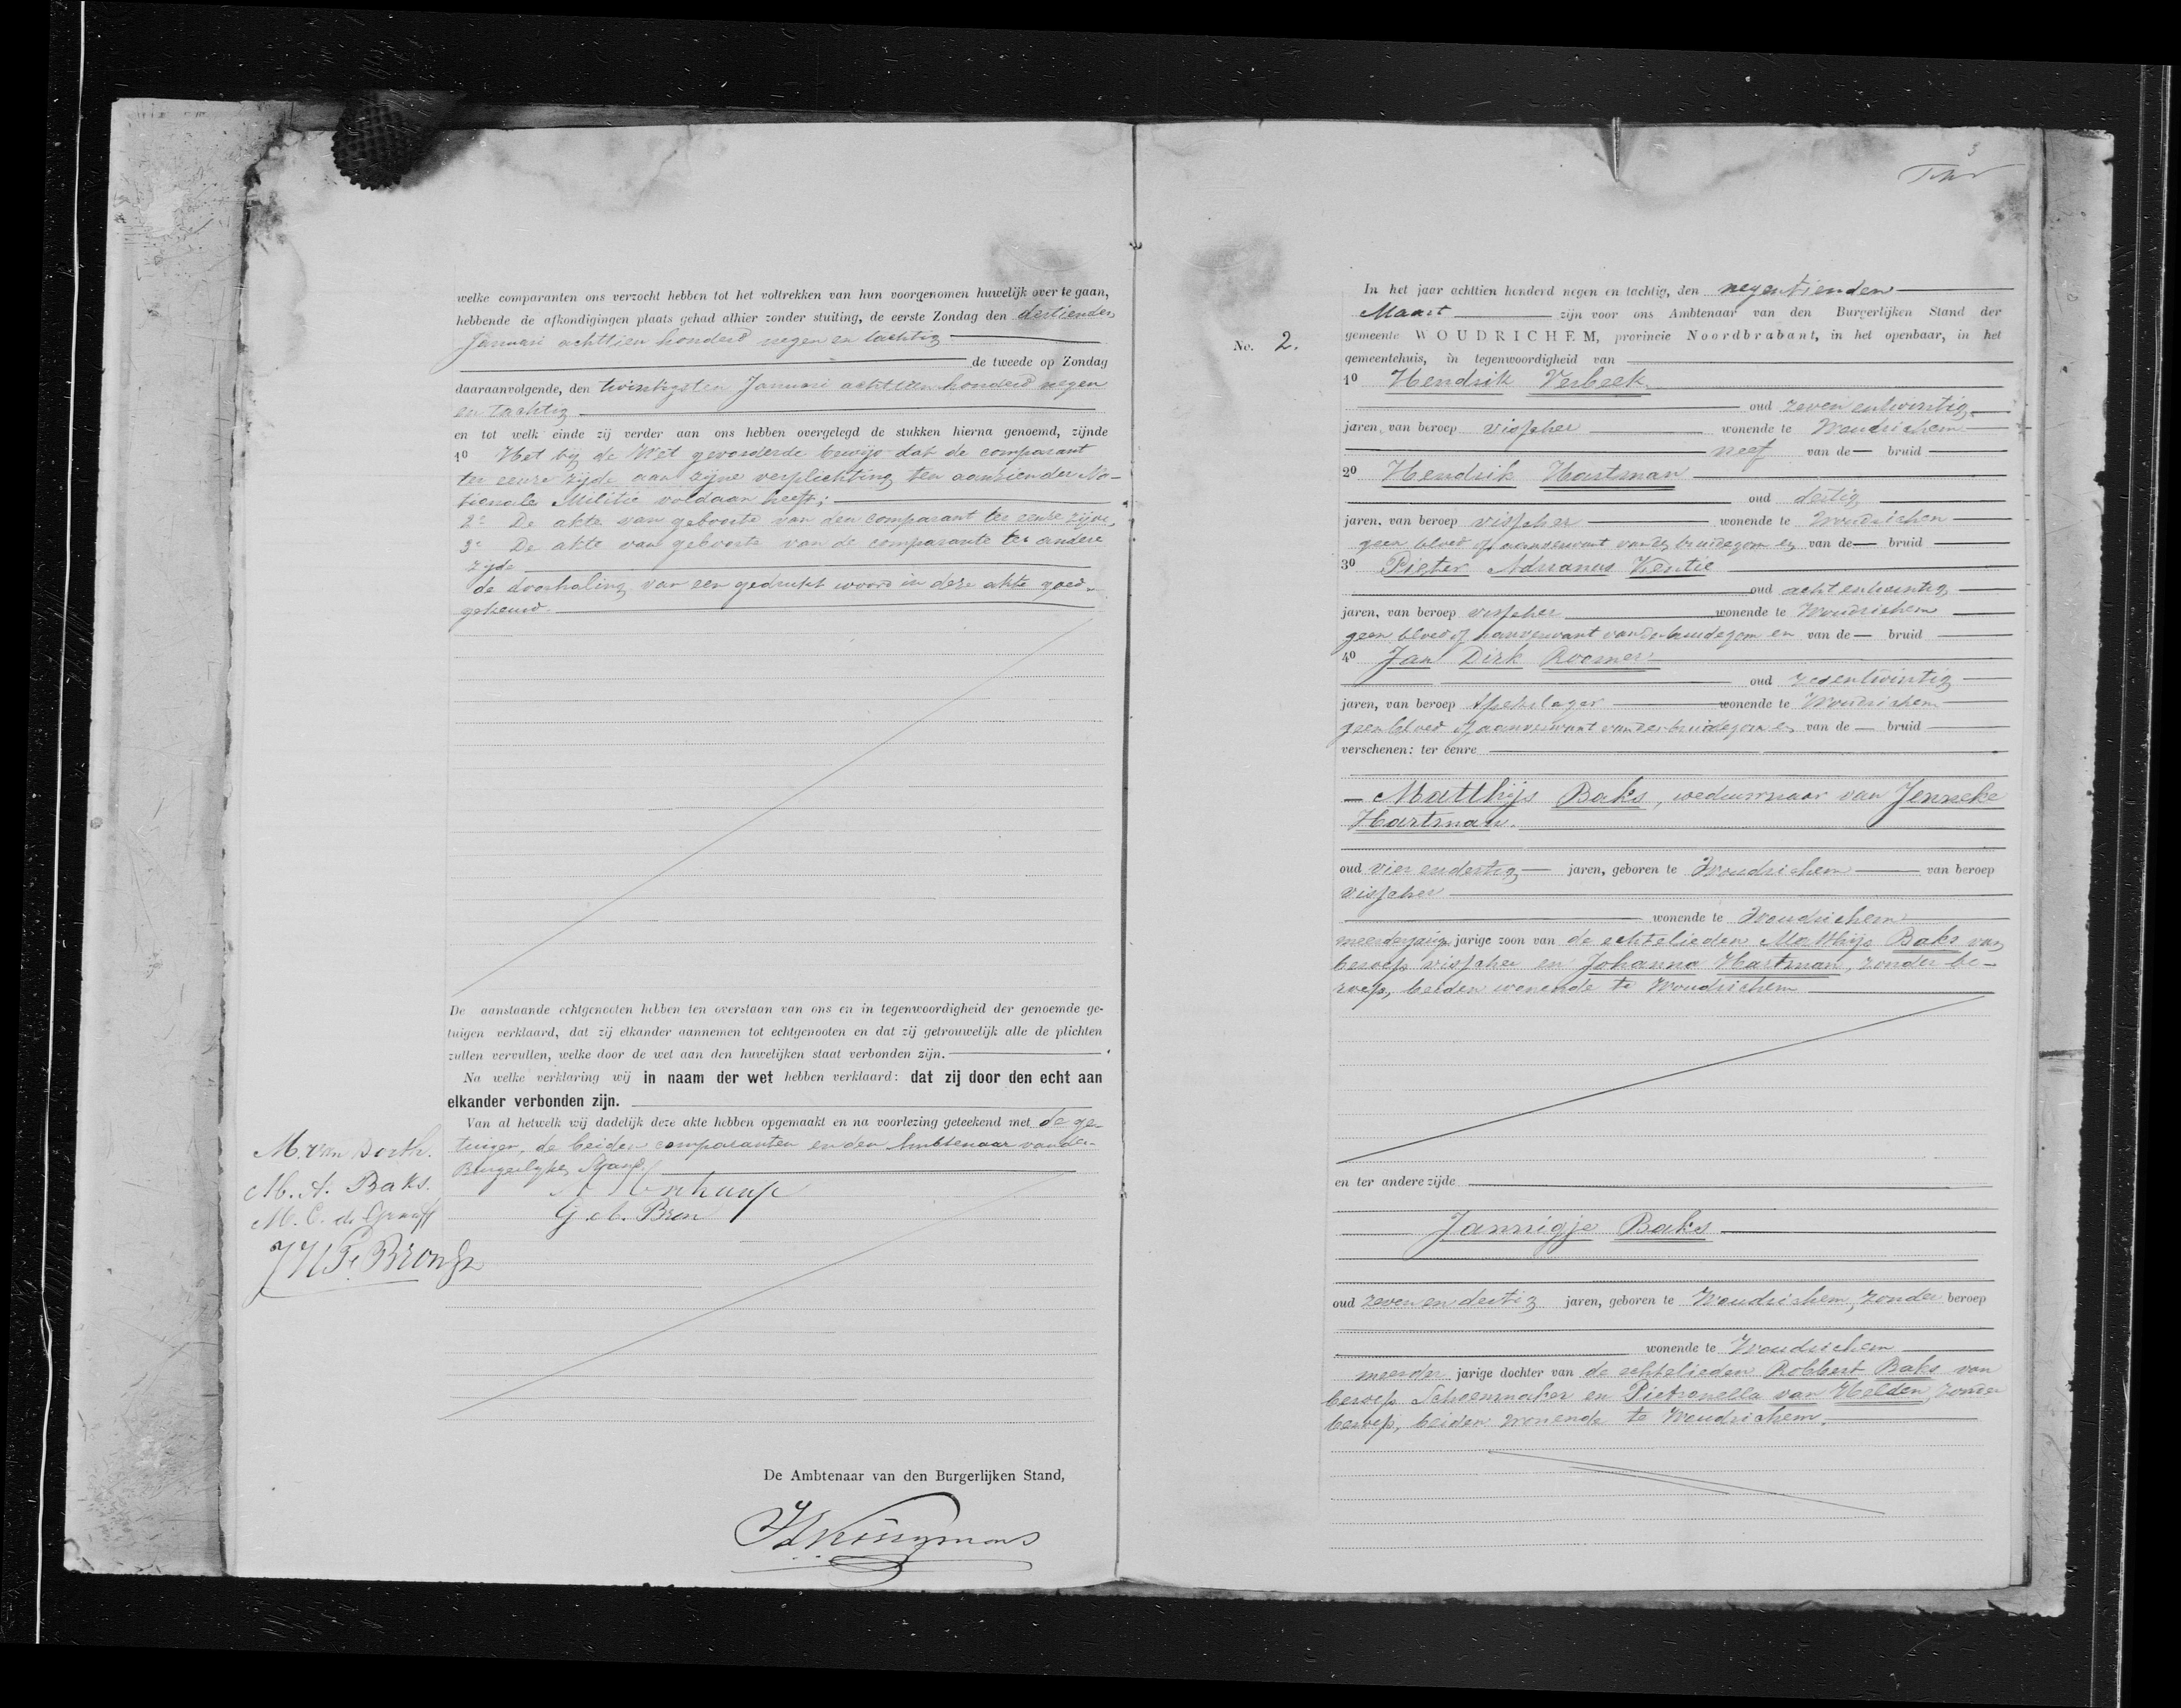 welke comparanten ons verzocht hebben tot het voltrekken van hun voorgenomen huwelijk over te gaan,
hebbende de afkondigingen plaats gehad alhier zonder stuiting, de eerste Zondag den dertienden
Januari achttien honderd negen en tachtig
de tweede op Zondag
daaraanvolgende, den twintigsten Januari achttien honderd negen
en tachtig
en tot welk einde zij verder aan ons hebben overgelegd de stukken hierna genoemd, zijnde
1o Het bij de Wet gevorderde bewijs dat de comparant
ter eenre zijde aan zijne verplichting ten aanzien der Na-
tionale Militie voldaan heeft;
2o De akte van geboorte van den comparant ter eenre zijde,
3o De akte van geboorte van de comparante ter andere
zijde
de doorhaling van een gedrukt woord in deze akte goed-
gekeurd.
De aanstaande echtgenooten hebben ten overstaan van ons en in tegenwoordigheid der genoemde ge-
tuigen verklaard, dat zij elkander aannemen tot echtgenooten en dat zij getrouwelijk alle de plichten
zullen vervullen, welke door de wet aan den huwelijken staat verbonden zijn.
Na welke verklaring wij in naam der wet hebben verklaard: dat zij door den echt aan
elkander verbonden zijn.
Van al hetwelk wij dadelijk deze akte hebben opgemaakt en na voorlezing geteekend met de ge-
tuigen, de beide comparanten en den Ambtenaar van den
Burgerlijken Stand.
M. van Dorth.
M. A. Baks.
M. C. de Graaff
G. M. Bron
De Ambtenaar van den Burgerlijken Stand,
3
No. 2.
In het jaar achttien honderd negen en tachtig, den negentienden
Maart zijn voor ons Ambtenaar van den Burgerlijken Stand der
gemeente WOUDRICHEM, provincie Noordbrabant, in het openbaar, in het
gemeentehuis, in tegenwoordigheid van
1o Hendrik Verbeek
oud zeven entwintig
jaren, van beroep visscher wonende te Woudrichem
neef van de bruid
2o Hendrik Hartman
oud dertig
jaren, van beroep visscher wonende te Woudrichem
geen bloed of aanverwant van den bruidegom en van de bruid
3o Pieter Adrianus Kentie
oud acht entwintig
jaren, van beroep visscher wonende te Woudrichem
geen bloed of aanverwant van den bruidegom en van de bruid
4o Jan Dirk Roemer
oud zesentwintig
jaren, van beroep spekslager wonende te Woudrichem
geen bloed of aanverwant van den bruidegom en van de bruid
verschenen: ter eenre
Matthijs Baks, weduwnaar van Jenneke
Hartman.
oud vier endertig jaren, geboren te Woudrichem van beroep
visscher
wonende te Woudrichem
meerderjarige jarige zoon van de echtelieden Matthijs Baks van
beroep visscher en Johanna Hartman, zonder be-
roep, beiden wonende te Woudrichem
en ter andere zijde
Jannigje Baks
oud zeven en dertig jaren, geboren te Woudrichem, zonder beroep
wonende te Woudrichem
meerder jarige dochter van de echtelieden Robbert Baks van
beroep Schoenmaker en Pietronella van Helden, zonder
beroep, beiden wonende te Woudrichem.